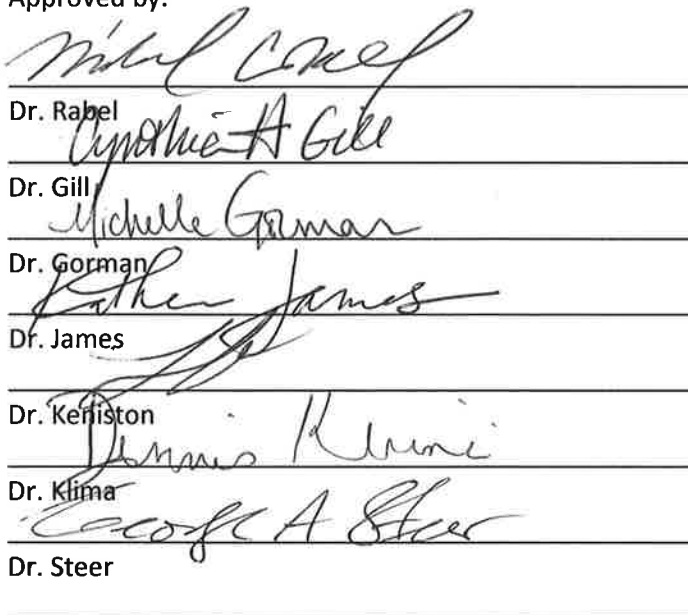 Approved by:
Dr. Rabel
Cynthia A Gill
Dr. Gill
Michelle Gorman
Dr. Gorman
James
Dr. James
Dr. Keniston
Dennis
Dr. Klima
George A Steer
Dr. Steer